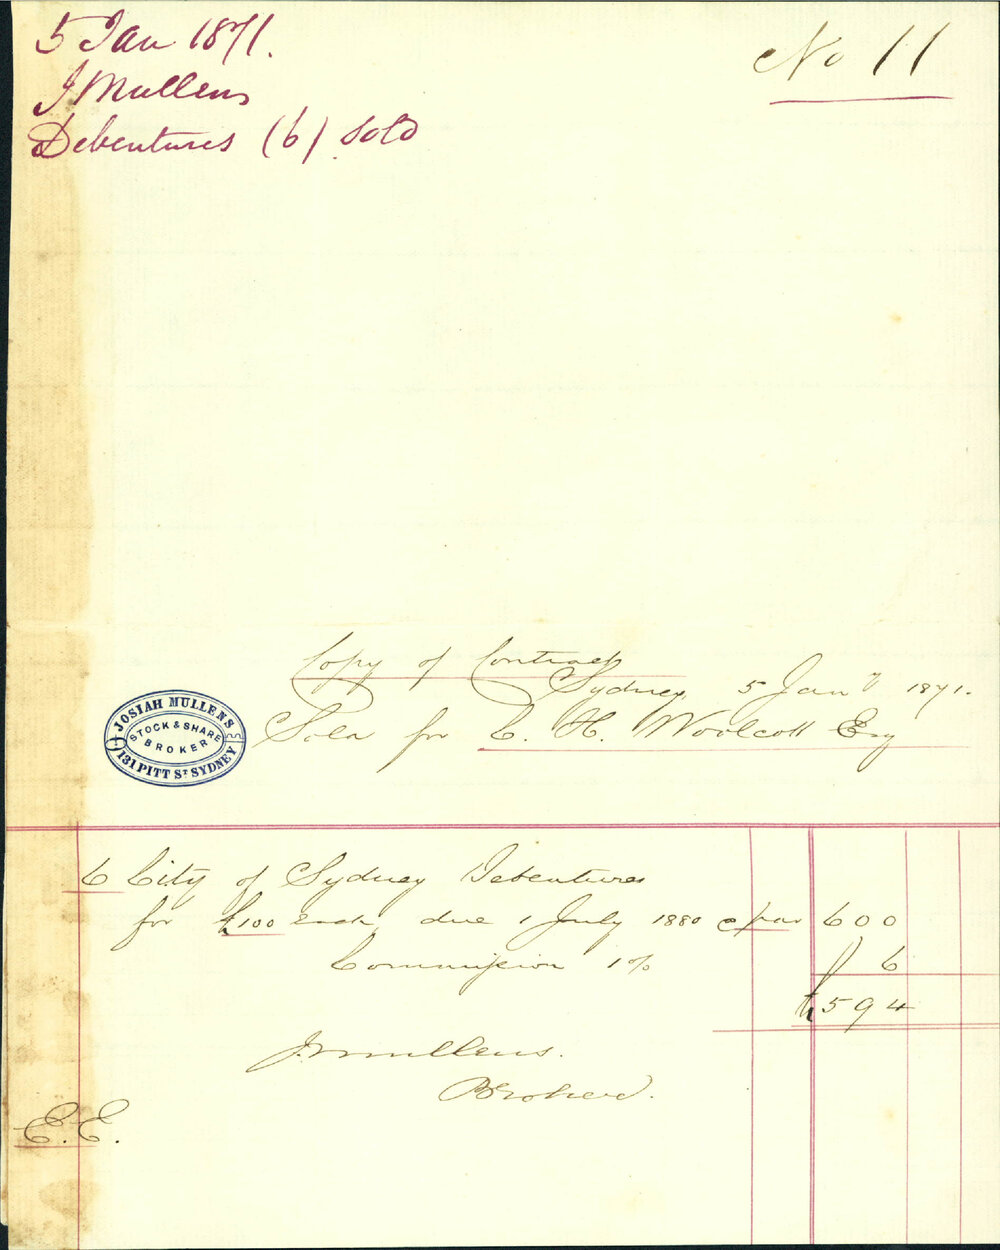 5 Jan 1871.
No 11
J Mullens
Debentures (6) Sold
Copy of Contract
Sydney 5 Jany 1871.
Sold for C. H. Woolcott Esq
JOSIAH MULLENS
STOCK & SHARE
BROKER
131 PITT ST SYDNEY
6 City of Sydney Debentures
for £100 each due 1 July 1880 @ par 600
Commission 1% 6
£594
J Mullens.
Broker.
E.E.